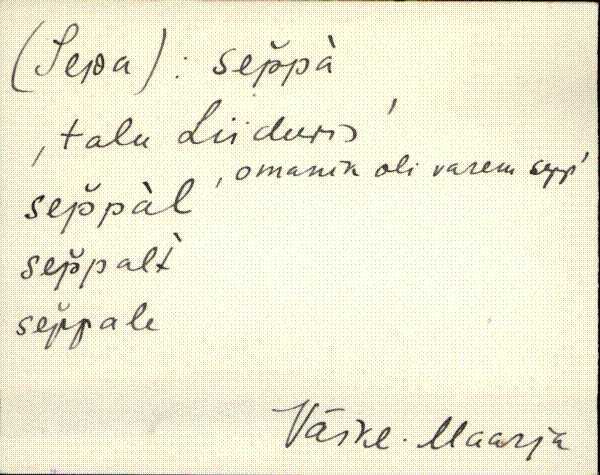 (Sepa): sep̆pà
‚talu Liiduris’
sep̆pàl ‚omanik oli varem sepp’
sep̆palt̀
sep̆pale
Väike-Maarja